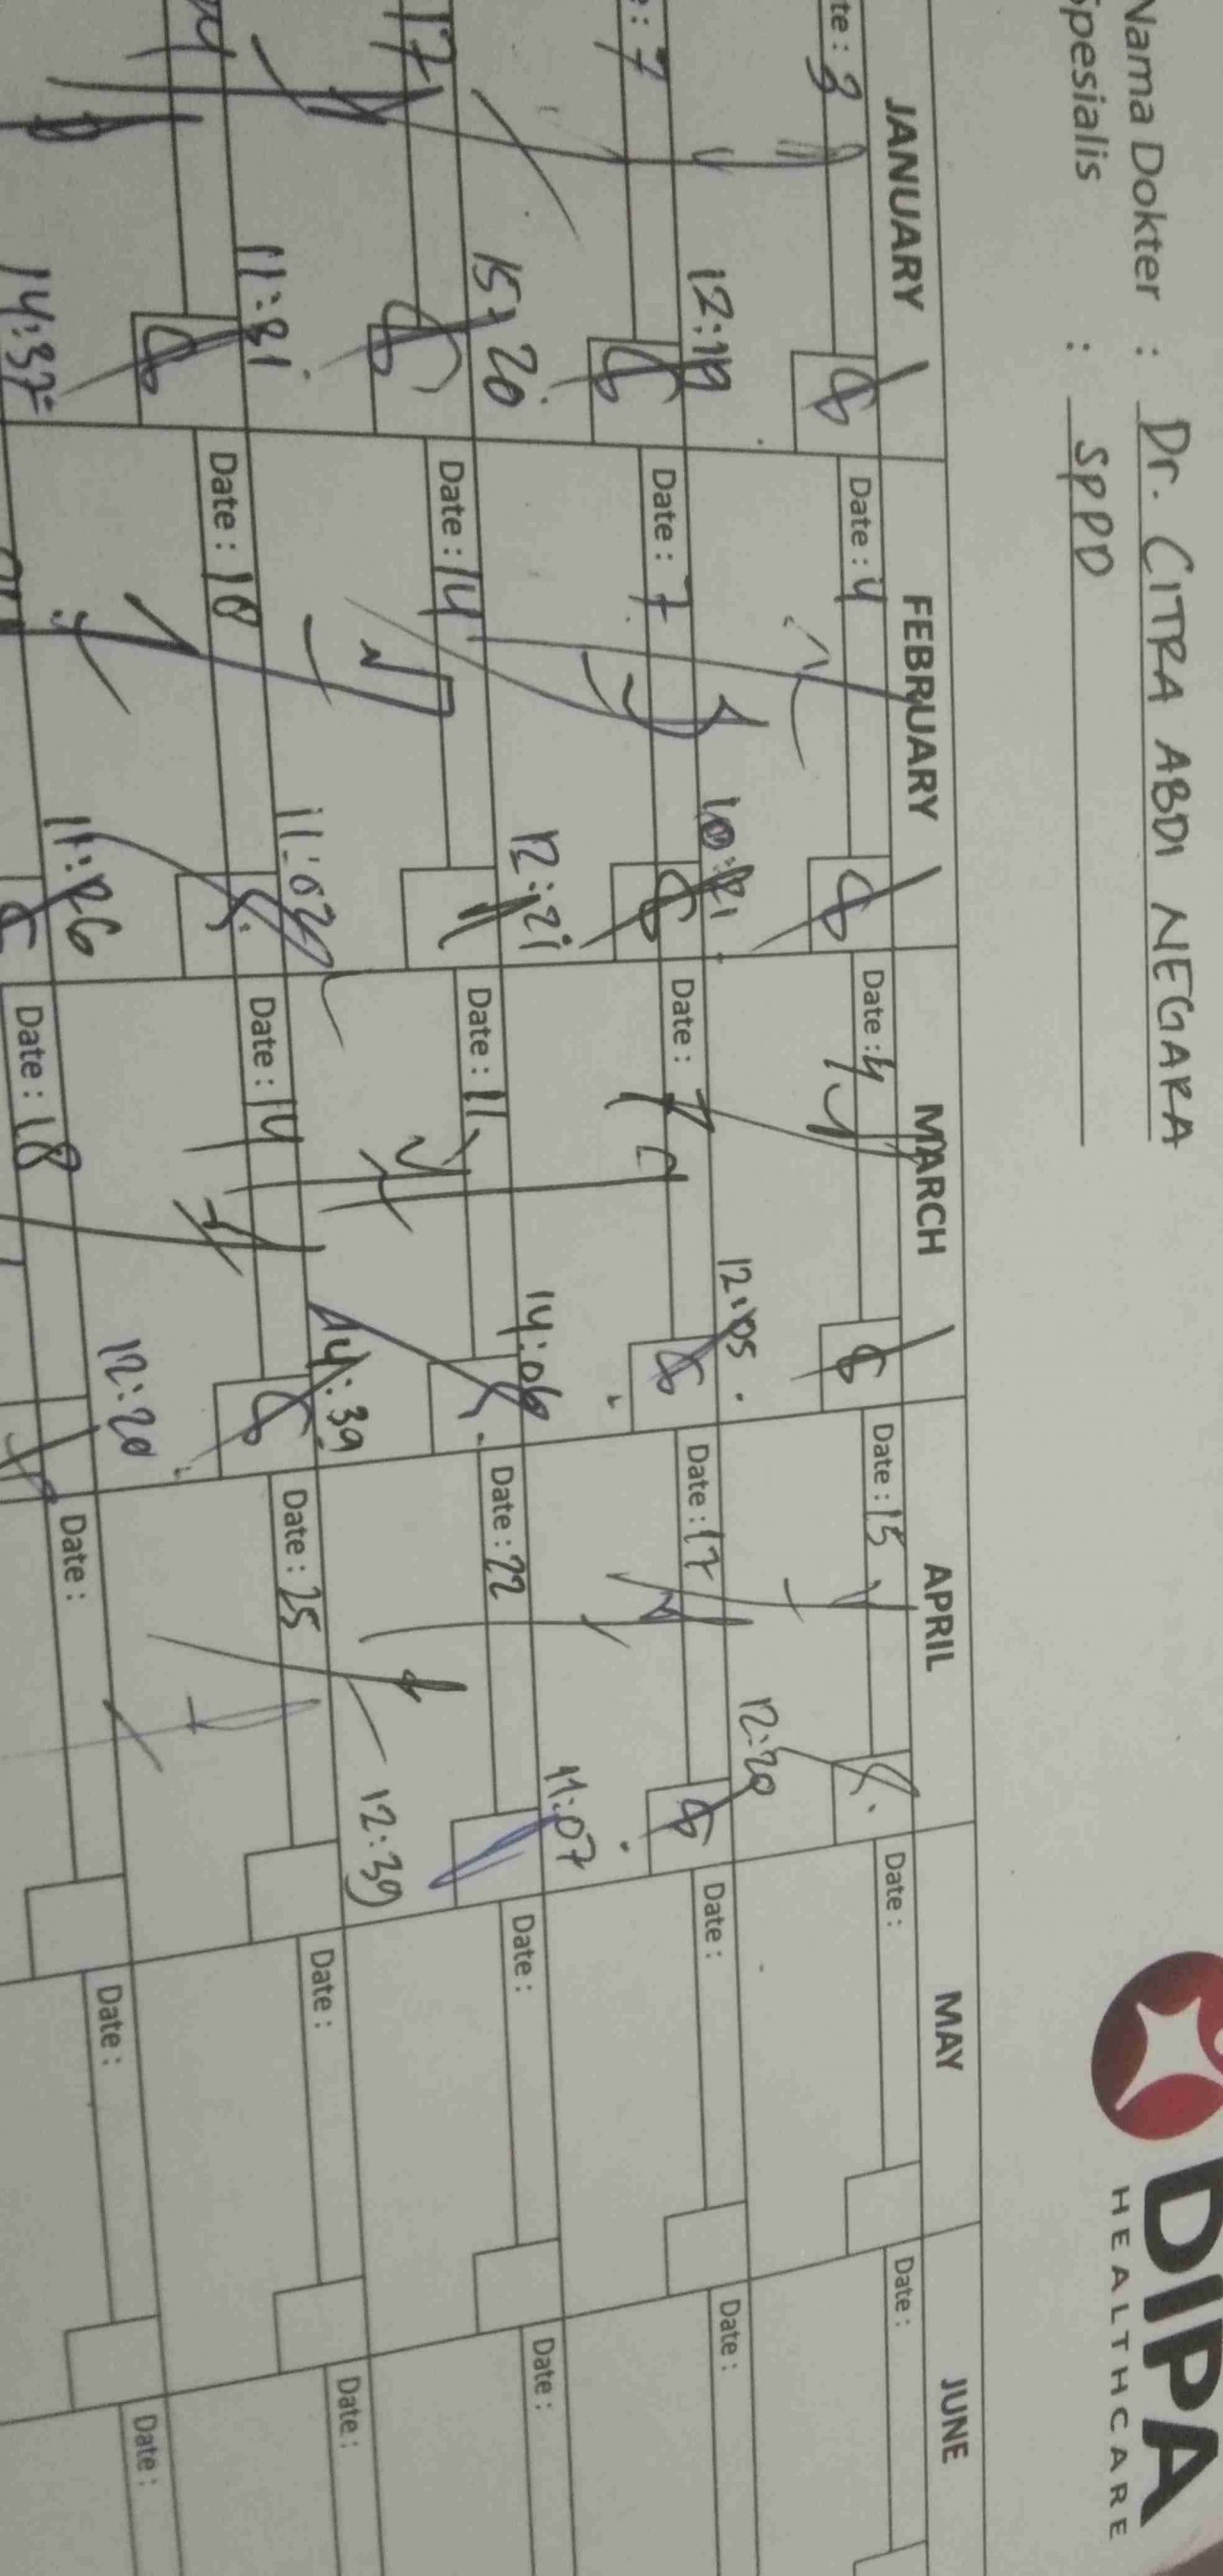 DIPA
HEALTHCARE
Nama Dokter : Dr. CITRA ABDI NEGARA
Spesialis : SPPD
JANUARY FEBRUARY MARCH APRIL MAY JUNE
te : 3 Date : 4 Date : 4 Date : 15 Date : Date :
12:19 12:05 12:20
e : 7 Date : 7 Date : 7 Date : 17 Date : Date :
15:20 12:21 14:06 11:07
17 Date : 14 Date : 11 Date : 22 Date : Date :
11:31 11:02 14:39 12:39
Date : 18 Date : 14 Date : 25 Date : Date :
14:37 11:26 12:20
Date : 18 Date : Date : Date :